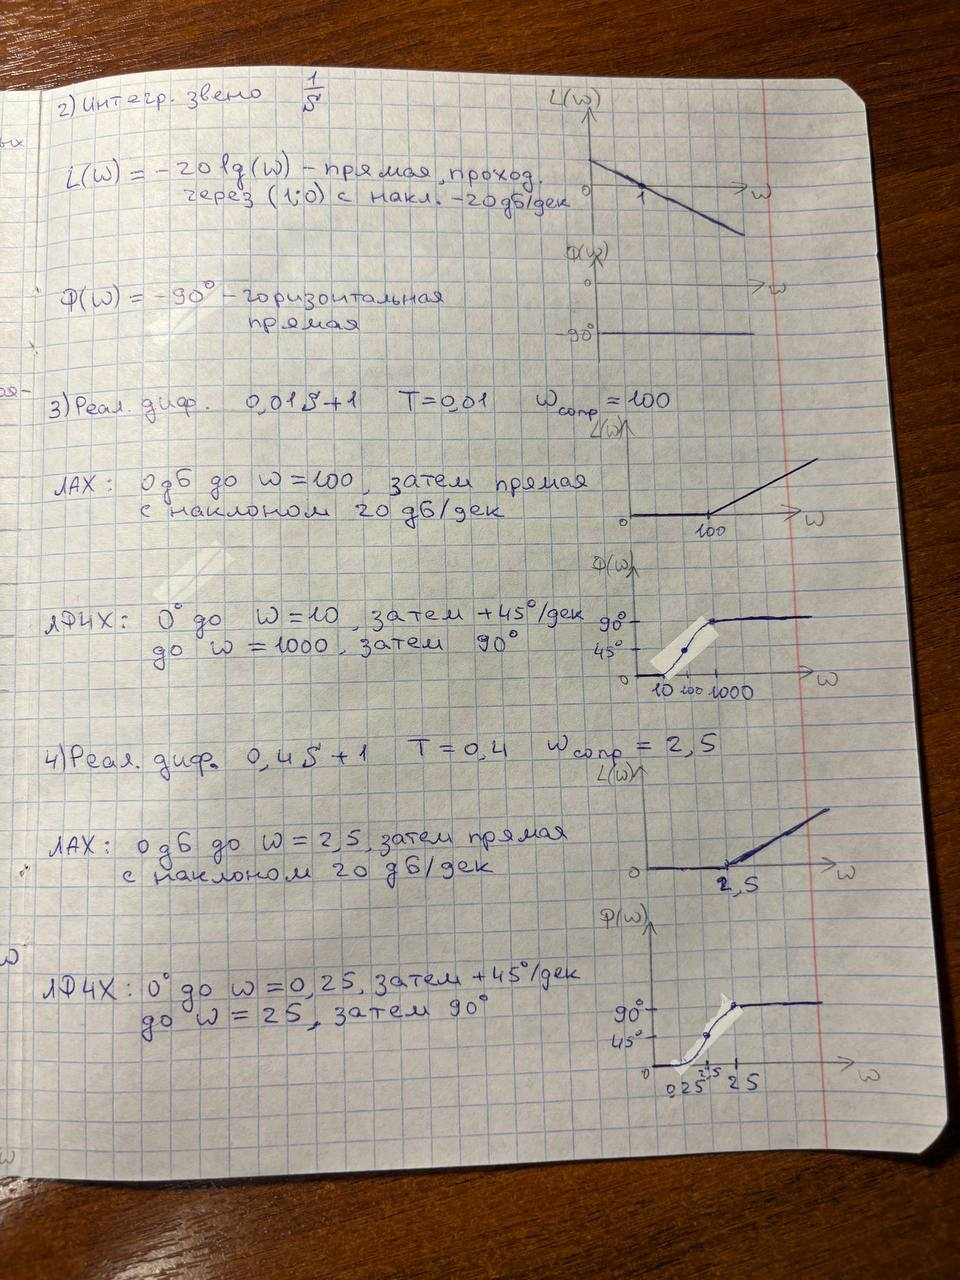 2) Интегр. звено 1/S
L(w)
L(w) = -20 lg(w) - прямая, проход.
через (1;0) с накл. -20дб/дек
0 1 w
Ф(w)
0 w
Ф(w) = -90° - горизонтальная
прямая
-90°
3) Реал. диф. 0,01S+1 T=0,01 w сопр = 100
L(w)
ЛАХ: 0дб до w=100, затем прямая
с наклоном 20 дб/дек
0 100 w
Ф(w)
ЛФЧХ: 0° до w=10, затем +45°/дек
до w=1000, затем 90°
90°
45°
0 10 100 1000 w
4) Реал. диф. 0,4S+1 T=0,4 w сопр = 2,5
L(w)
ЛАХ: 0дб до w=2,5, затем прямая
с наклоном 20 дб/дек
0 2,5 w
Ф(w)
ЛФЧХ: 0° до w=0,25, затем +45°/дек
до w=25, затем 90°
90°
45°
0 0,25 2,5 25 w